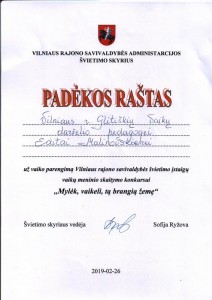 VILNIAUS RAJONO SAVIVALDYBĖS ADMINISTRACIJOS
ŠVIETIMO SKYRIUS
PADĖKOS RAŠTAS
Vilniaus r. Glitiškių vaikų
darželio pedagogei
Editai
už vaiko parengimą Vilniaus rajono savivaldybės švietimo įstaigų
vaikų meninio skaitymo konkursui
„Mylėk, vaikeli, tą brangią žemę“
Švietimo skyriaus vedėja
Sofija Ryžova
2019-02-26